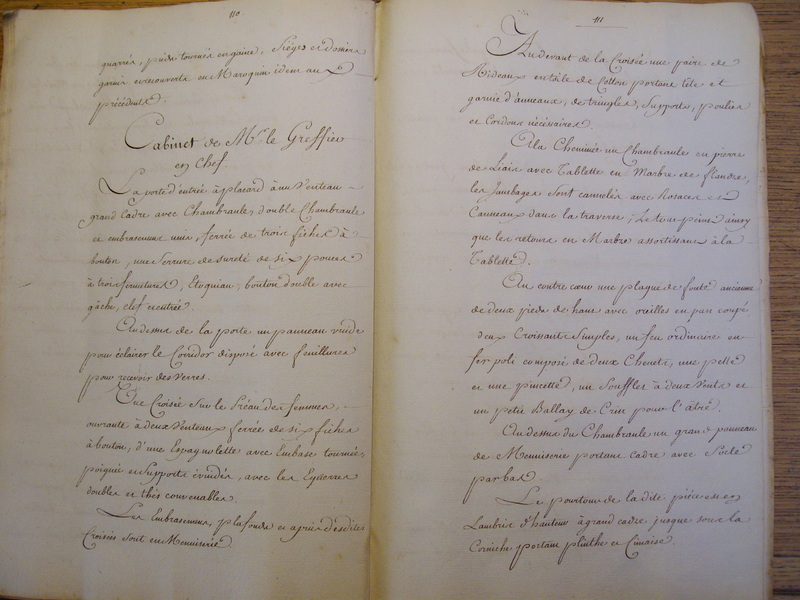 110.
quarrés, pieds tournés en gaine, Sièges et dossiers
garnis et recouverts en Maroquin idem aux
précédents.
Cabinet de Mr. le Greffier
en Chef.
La porte d'entrée à placard à un Venteau
grand Cadre avec Chambranle, double Chambranle
et embrasement unis, ferrée de trois fiches à
bouton, une Serrure de sureté de six pouces
à trois fermetures, bouton double avec
gâche, clef et entrée.
Au dessus de la porte un panneau vuide
pour éclairer le Coridor disposé avec feuillures
pour recevoir des verres.
Une Croisée Sur le Préau des femmes,
ouvrante à deux Venteaux ferrée de six fiches
à bouton, d'une Espagnolette avec Embase tournée,
poignée et Supports évuidés, avec les Equerres
doubles et thés convenables.
Les Embrasemens, plafonds et apuis desdites
Croisées sont en Menuiserie.
111
Au devant de la Croisée une paire de
Rideaux en toile de Cotton portant tête et
garnie d'anneaux, de tringles, Supports, poulies
et Cordons nécéssaires.
A la Cheminée un Chambranle en pierre
de Liais avec Tablette en Marbre de flandre,
les Jambages sont canelés avec Rosaces et
Canneaux dans la traverse; Le tour peint ainsy
que les retours en Marbre assortissant à la
Tablette.
Au contre cœur une plaque de fonte ancienne
de deux pieds de haut avec oreilles en pan coupé
deux Croissants Simples, un feu ordinaire en
fer poli composé de deux Chenets, une pelle
et une pincette, un Soufflet à deux Vents et
un petit Ballay de Crin pour l'âtre.
Au dessus du Chambranle un grand panneau
de Menuiserie portant cadre avec Socle
par bas.
Le pourtour de la dite pièce est en
Lambris d'hauteur à grand cadre jusque sous la
Corniche portant plinthe et Cimaise.